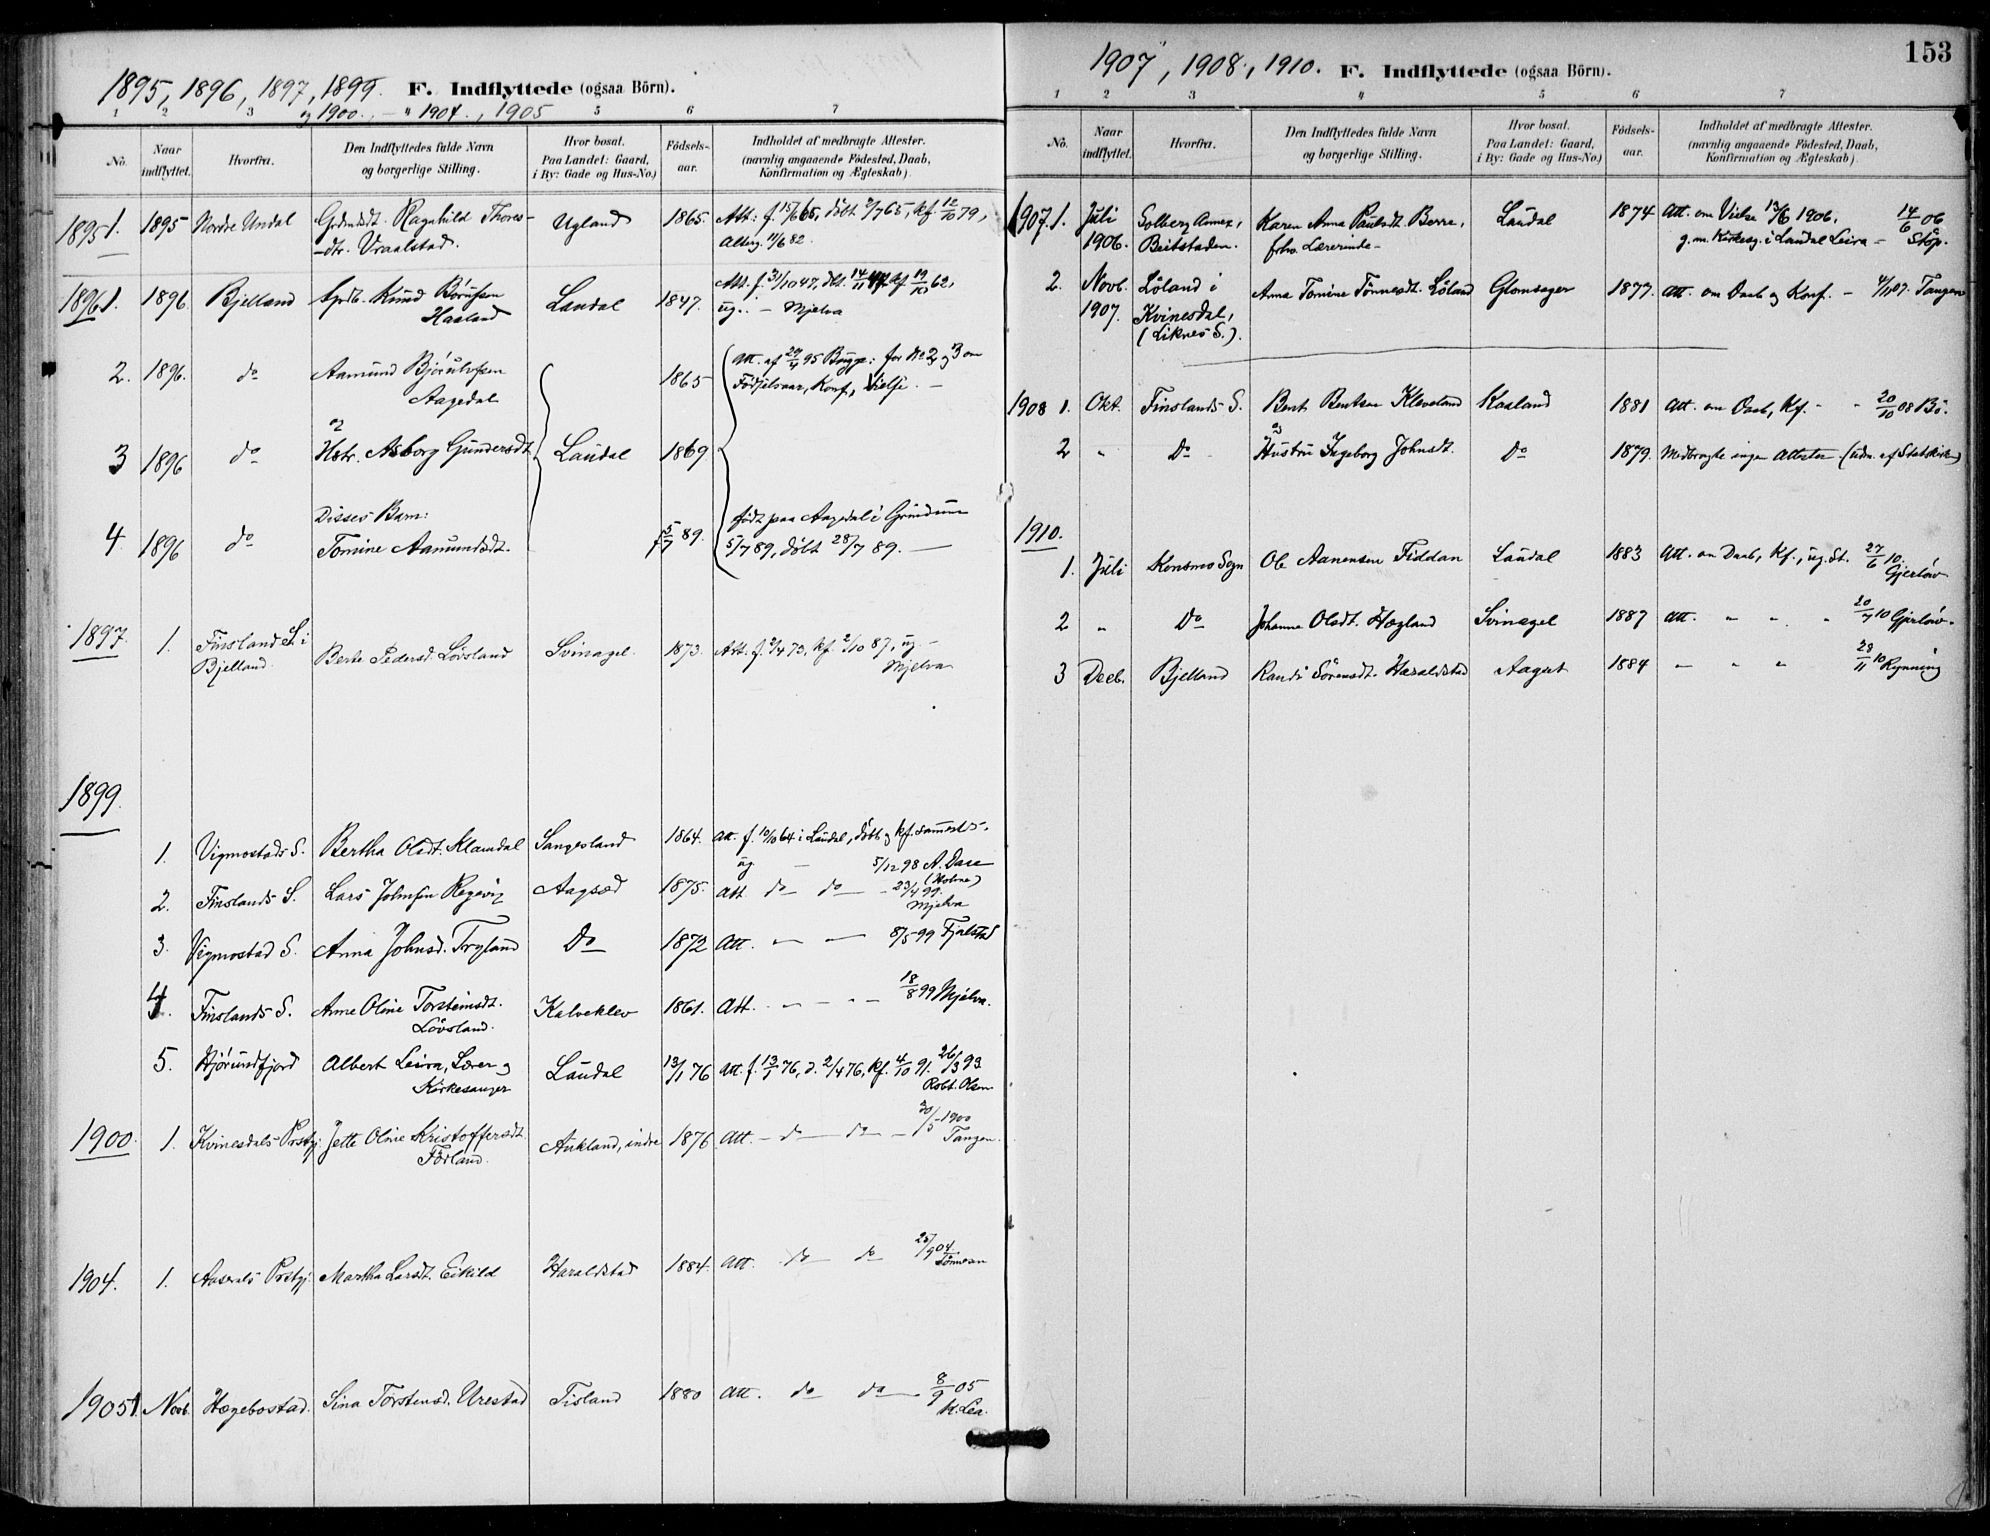 1895, 1896, 1897, 1899. F. Indflyttede (ogsaa Börn).
og 1900. — " 1904. , 1905
1 2 3 5 6 7
No. Naar indflyttet. Hvorfra. Den Indflyttedes fulde Navn og borgerlige Stilling. Hvor bosat. Paa Landet: Gaard, i By: Gade og Hus-No.) Födsels-aar. Indholdet af medbragte Attester. (navnlig angaaende Födested, Daab, Konfirmation og Ægteskab)
1895 1. 1895 Nordre Undal Ragnhild Thores-
-dtr. Vraalstad. Ugland 1865. Att: f. 15/6 65, döbt 9/7 65, kf. 12/10 79,
11/6 82.
1896 1. 1896. Bjelland Knud
Haaland Laudal 1847. Att. f. 31/10 47, kf 19/10 62,
ug. — Mjelva
2. 1896. do Aamund Bjórulvsen
Aagedal 1865 Att. af 29/4 95 for No 2 og 3 om
Födselsaar, Konf., Vielse. —
og
3 1896 do Hstr. Asborg Gundersdt. Laudal 1869
Disses Barn:
4 1896 do Tomine Aamundsdt. f 5/7 89. födt paa Aagedal i Grindum
5/7 89, döbt 28/7 89. —
1897. 1. Finsland S. i
Bjelland. Berte Pedersd. Lövsland Svinagel. 1873. Att. f. 2/4 73, kf. 2/10 87, ug. —
Mjelva
1899.
1. Vigmostads S. Bertha Olsdt. Klamdal Sangesland 1864. Att. f. 10/10 64 i Laudal, döbt og kf. sammests.
ug — 5/12 98 A. Daae
(Holme)
2. Finslands S. Lars Johnsen Regevig Aagsæd 1875. Att. do do — 23/4 99.
Mjelva
3. Vigmostad S. Anna Johnsd. Trygland Do 1872 Att. — — 8/5 99 Fjalstad
4. Finslands S. Anne Oline Torsteinsdt.
Lövsland. Kalveklev 1861. Att. — — — 18/8 99 Mjelva.
5. Hjörundfjord Albert Leira, Lærer og
Kirkesanger Laudal 13/1 76 Att. f. 13/1 76, d. 2/4 76, kf. 4/10 91. 26/3 93
Robt. Olsen
1900. 1. Kvinesdals Prstgj. Jette Oline Kristoffersdt.
Förland. Aukland, indre 1876 Att. — do — do — 30/5 1900
Tangen.
1904. 1. Aaserals Prstgj. Martha Larsdt. Eikild Haraldstad 1884. Att. do do 25/9 04
1905 1. Novb. Hægebostad. Sina Torstensd. Urestad Tisland 1880 Att. do do — 8/9 05
K. Lea.
153
1907, 1908., 1910. F. Indflyttede (ogsaa Börn).
1 2 3 4 5 6 7
No. Naar indflyttet. Hvorfra. Den Indflyttedes fulde Navn og borgerlige Stilling. Hvor bosat. Paa Landet: Gaard, i By: Gade og Hus-No.) Födsels-aar. Indholdet af medbragte Attester. (navnlig angaaende Födested, Daab, Konfirmation og Ægteskab)
1907. 1. Juli
1906. Solberg Annex,
Beitstaden. Karen Anna Paulsdt. Berre,
frhv. Lærerinde — Laudal 1874 Att. om Vielse 13/6 1906. 14/6 06
g. m. Kirkesg. i Laudal Leira — Stöp.
2. Novb.
1907. Löland i
Kvinesdal,
(Liknes S.). Anna Tomine Tönnesdt. Löland Glomsager 1877. Att. om Daab og Konf. — 4/11 07. Tangen
1908 1. Okt. Finslands S. Bent Bentsen Kleveland Kaaland 1881 Att. om Daab, Kf. — — 20/10 08 Bö.
og
2 " Do Hustru Ingeborg Johnsdt. Do 1879. Medbragte ingen Attester (udm. af Statskirken)
1910.
1. Juli Konsmo Sogn Ole Aanensen Fiddan Laudal 1883 Att. om Daab, Kf., ug. St. 27/6 10.
Gjerlöw
2 " Do Johanne Olsdt. Hægland Svinagel 1887 Att. " " " 20/7 10 Gjerlöw.
3 Decb. Bjelland Randi Sörensdt. Haraldstad Aagset 1884 — " " 28/11 10 Rynning